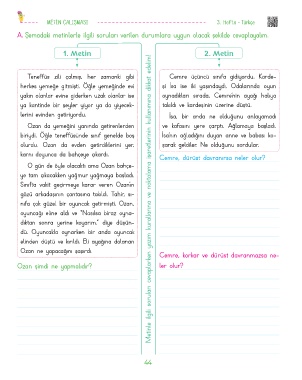 METİN ÇALIŞMASI
3. Hafta - Türkçe
A. Şemadaki metinlerle ilgili soruları verilen durumlara uygun olacak şekilde cevaplayalım.
1. Metin
Teneffüs zili çalmış, her zamanki gibi
herkes yemeğe gitmişti. Öğle yemeğinde evi
yakın olanlar evine giderken uzak olanlar ise
ya kantinde bir şeyler yiyor ya da yiyecek-
lerini evinden getiriyordu.
Ozan da yemeğini yanında getirenlerden
biriydi. Öğle teneffüsünde sınıf genelde boş
olurdu. Ozan da evden getirdiklerini yer,
karnı doyunca da bahçeye çıkardı.
O gün de öyle olacaktı ama Ozan bahçe-
ye tam çıkacakken yağmur yağmaya başladı.
Sınıfta vakit geçirmeye karar veren Ozanın
gözü arkadaşının çantasına takıldı. Tahir, sı-
nıfa çok güzel bir oyuncak getirmişti. Ozan,
oyuncağı eline aldı ve "Nasılsa biraz oyna-
dıktan sonra yerine koyarım," diye düşün-
dü. Oyuncakla oynarken bir anda oyuncak
elinden düştü ve kırıldı. Eli ayağına dolanan
Ozan ne yapacağını şaşırdı.
Ozan şimdi ne yapmalıdır?
Metinle ilgili soruları cevaplarken yazım kurallarına ve noktalama işaretlerinin kullanımına dikkat edelim!
2. Metin
Cemre üçüncü sınıfa gidiyordu. Karde-
şi İsa ise iki yaşındaydı. Odalarında oyun
oynadıkları sırada, Cemre'nin ayağı halıya
takıldı ve kardeşinin üzerine düştü.
İsa, bir anda ne olduğunu anlayamadı
ve kafasını yere çarptı. Ağlamaya başladı.
İsa'nın ağladığını duyan anne ve babası ko-
şarak geldiler. Ne olduğunu sordular.
Cemre, dürüst davranırsa neler olur?
Cemre, korkar ve dürüst davranmazsa ne-
ler olur?
44